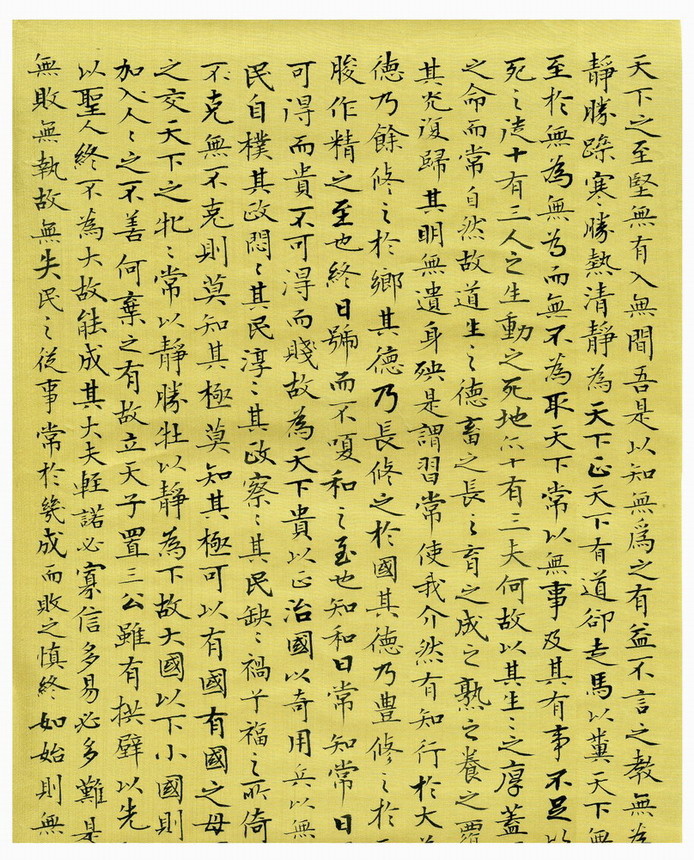 天下之至堅無有入無間吾是以知無爲之有益不言之教無為
靜勝躁寒勝熱清靜為天下正天下有道卻走馬以糞天下無
至於無為無為而無不為取天下常以無事及其有事不足以
死之徒十有三人之生動之死地亦十有三夫何故以其生〻之厚蓋
之命而常自然故道生之德畜之長之育之成之熟之養之覆
其光復歸其明無遺身殃是謂習常使我介然有知行於大
德乃餘修之於鄉其德乃長修之於國其德乃豐修之於
朘作精之至也終日號而不嗄和之至也知和曰常知常曰
可得而貴不可得而賤故為天下貴以正治國以奇用兵以無
民自樸其政悶〻其民淳〻其政察〻其民缺〻禍兮福之所倚
不克無不克則莫知其極莫知其極可以有國有國之母
之交天下之牝〻常以靜勝牡以靜為下故大國以下小國則
加入人〻之不善何棄之有故立天子置三公雖有拱璧以先
以聖人終不為大故能成其大夫輕諾必寡信多易必多難是
無敗無執故無失民之從事常於幾成而敗之慎終如始則無